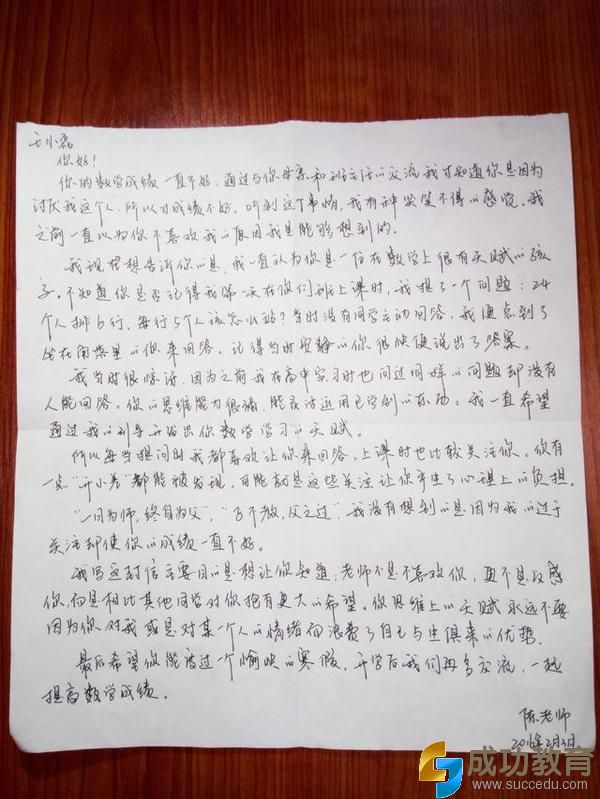 王小磊
你好！
你的数学成绩一直不好，通过与你母亲和班主任的交流我才知道你是因为
讨厌我这个人，所以才成绩不好。听到这个事情，我有种哭笑不得的感觉。我
之前一直以为你不喜欢我的原因我是能够想到的。
我现在想告诉你的是，我一直认为你是一位在数学上很有天赋的孩
子。不知道你是否记得我第一天在你们班上课时，我提了一个问题：24
个人排6行，每行5个人该怎么站？当时没有同学主动回答，我便点到了
坐在角落里的你来回答。记得当时安静的你很快便说出了答案。
我当时很惊讶，因为之前我在高中实习时也问过同样的问题却没有
人能回答。你的思维能力很强，能灵活运用已学到的东西。我一直希望
通过我的引导开发出你数学学习的天赋。
所以每当提问时我都喜欢让你来回答，上课时也比较关注你，你有
一点“开小差”都能被发现，可能就是这些关注让你产生了心理上的负担。
“一日为师，终身为父”，“子不教，父之过”，我没有想到的是因为我的过于
关注却使你的成绩一直不好。
我写这封信主要目的是想让你知道：老师不是不喜欢你，更不是反感
你，而是相比其他同学对你抱有更大的希望。你思维上的天赋永远不要
因为你对我或是对某一个人的情绪而浪费了自己与生俱来的优势。
最后希望你能度过一个愉快的寒假，开学后我们再多交流，一起
提高数学成绩。
陈老师
2016年2月3日
成功教育
www.succedu.com